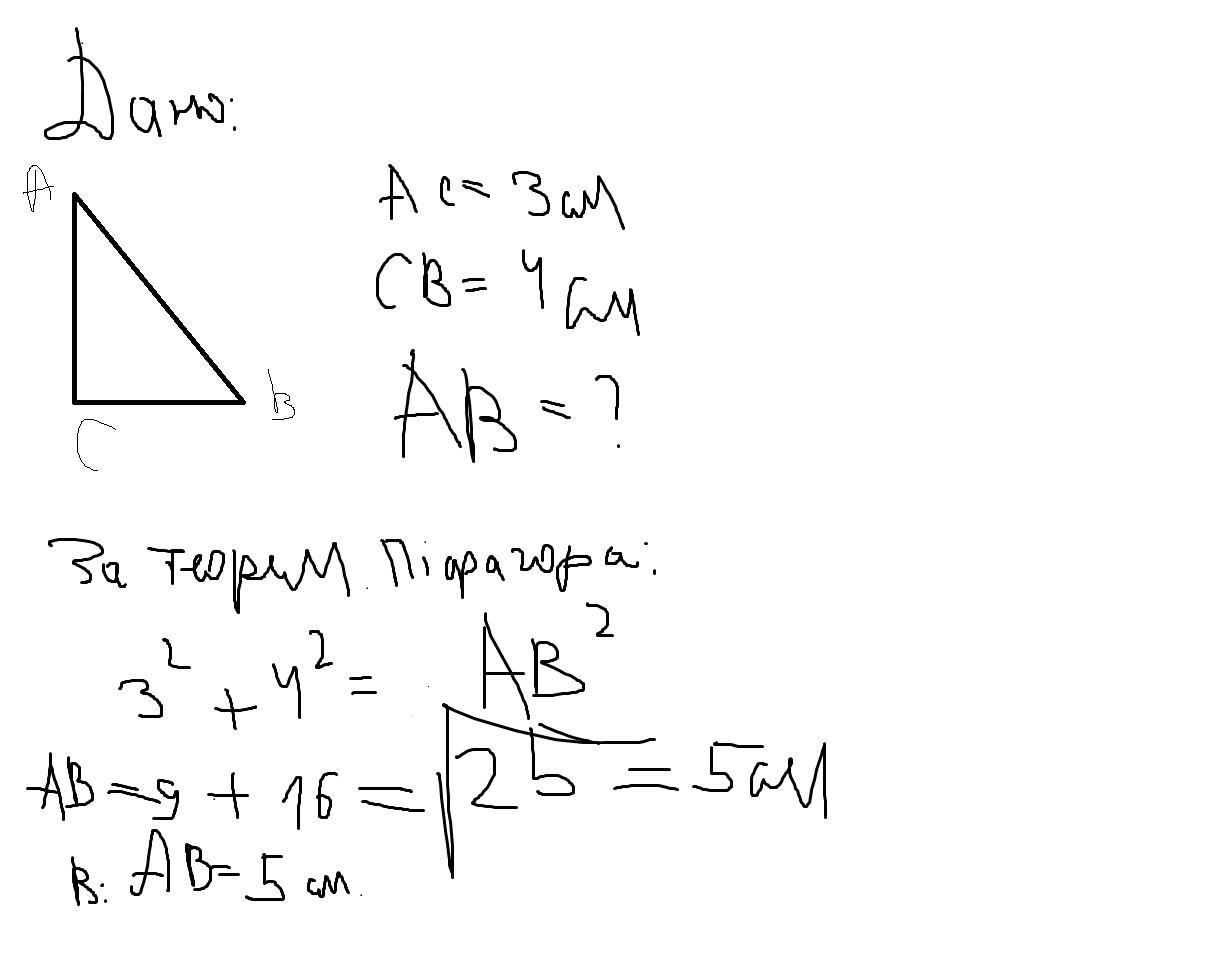 Дано:
A
AC = 3 см
CB = 4 см
B
AB = ?
C
За теорем. Піфагора:
3² + 4² = AB²
AB = 9 + 16 = √25 = 5 см
В: AB = 5 см.